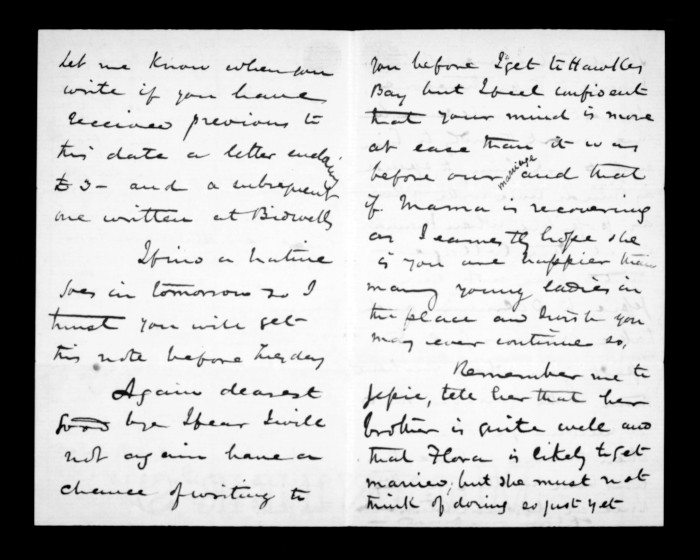 let me know when you
write if you have
received previous to
this date a letter enclosing
£3 - and a subsequent
one written at Bidwells
I find a native
goes in tomorrow so I
trust you will get
this note before Tuesday
Again dearest
Good bye I fear I will
not again have a
chance of writing to
you before I get to Hawkes
Bay but I feel confident
that your mind is more
at ease than it was
before our marriage and that
if Mama is recovering
as I earnestly hope she
is you are happier than
many young ladies in
the place and I wish you
may ever continue so,
Remember me to
Jessie, tell her that her
brother is quite well and
that Flora is likely to get
married, but she must not
think of doing so just yet